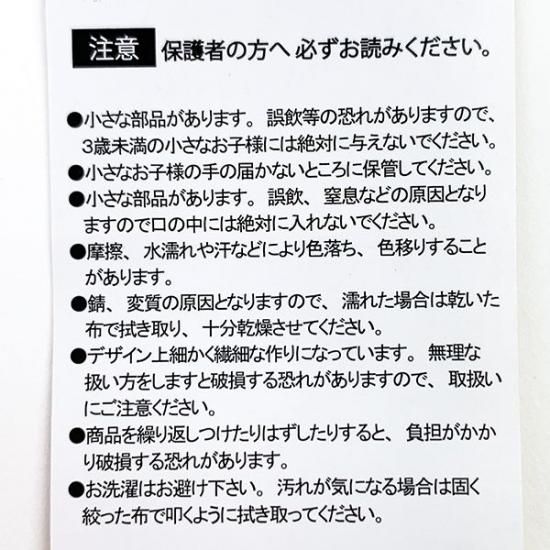 注意 保護者の方へ 必ずお読みください。
●小さな部品があります。誤飲等の恐れがありますので、
3歳未満の小さなお子様には絶対に与えないでください。
●小さなお子様の手の届かないところに保管してください。
●小さな部品があります。誤飲、窒息などの原因となり
ますので口の中には絶対に入れないでください。
●摩擦、水濡れや汗などにより色落ち、色移りすること
があります。
●錆、変質の原因となりますので、濡れた場合は乾いた
布で拭き取り、十分乾燥させてください。
●デザイン上細かく繊細な作りになっています。無理な
扱い方をしますと破損する恐れがありますので、取扱い
にご注意ください。
●商品を繰り返しつけたりはずしたりすると、負担がかか
り破損する恐れがあります。
●お洗濯はお避け下さい。汚れが気になる場合は固く
絞った布で叩くように拭き取ってください。